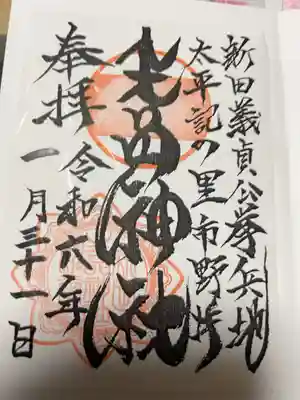 新田義貞公挙兵地
太平記の里市野井
生品神社
奉拝
令和六年
一月三十一日